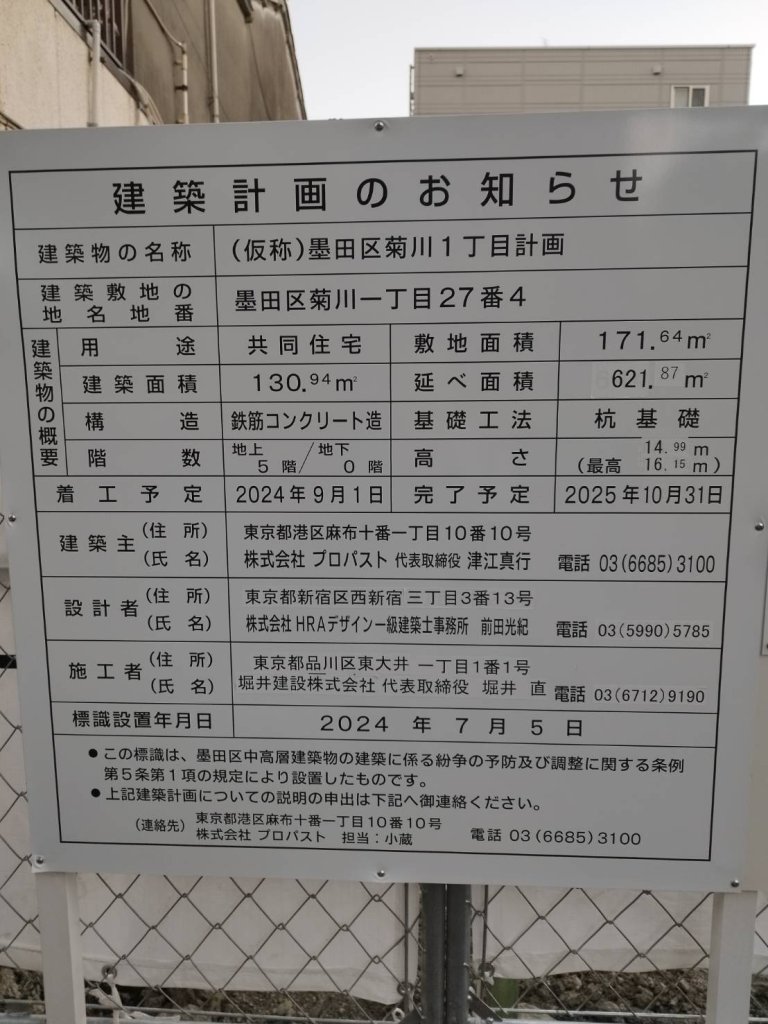 建築計画のお知らせ
建築物の名称 (仮称)墨田区菊川1丁目計画
建築敷地の地名地番 墨田区菊川一丁目27番4
建築物の概要
用途 共同住宅 敷地面積 171.64㎡
建築面積 130.94㎡ 延べ面積 621.87㎡
構造 鉄筋コンクリート造 基礎工法 杭基礎
階数 地上5階/地下0階 高さ 14.99m (最高16.15m)
着工予定 2024年9月1日 完了予定 2025年10月31日
建築主 (住所) 東京都港区麻布十番一丁目10番10号
(氏名) 株式会社 プロパスト 代表取締役 津江真行 電話 03(6685)3100
設計者 (住所) 東京都新宿区西新宿三丁目3番13号
(氏名) 株式会社HRAデザイン一級建築士事務所 前田光紀 電話 03(5990)5785
施工者 (住所) 東京都品川区東大井 一丁目1番1号
(氏名) 堀井建設株式会社 代表取締役 堀井 直 電話 03(6712)9190
標識設置年月日 2024年7月5日
●この標識は、墨田区中高層建築物の建築に係る紛争の予防及び調整に関する条例
第5条第1項の規定により設置したものです。
●上記建築計画についての説明の申出は下記へ御連絡ください。
(連絡先) 東京都港区麻布十番一丁目10番10号
株式会社 プロパスト 担当:小蔵 電話 03(6685)3100